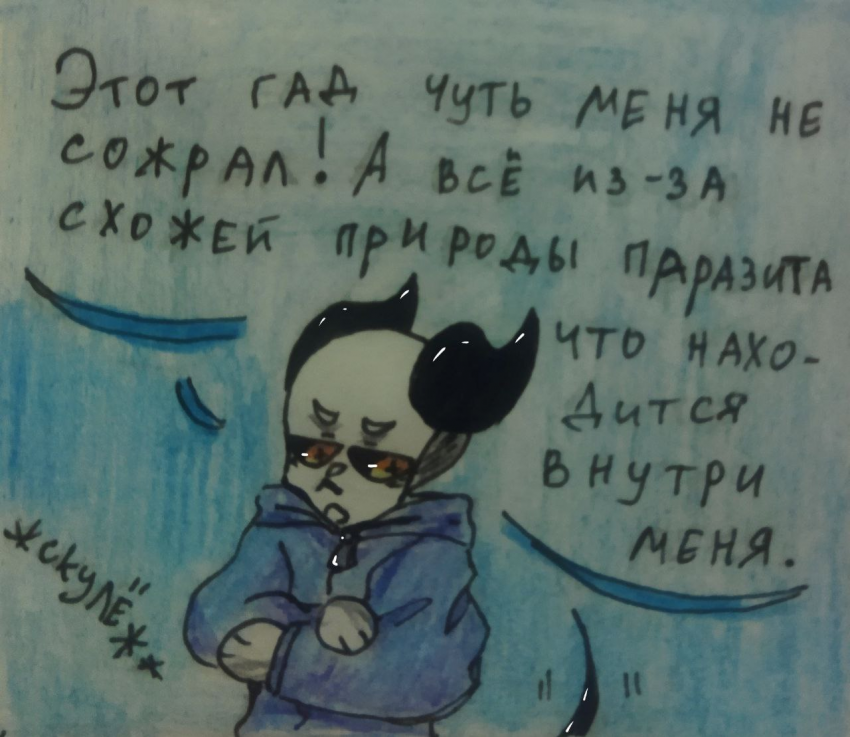 Этот гад чуть меня не
сожрал! А всё из-за
схожей природы паразита
что нахо-
дится
внутри
меня.
*скулё**